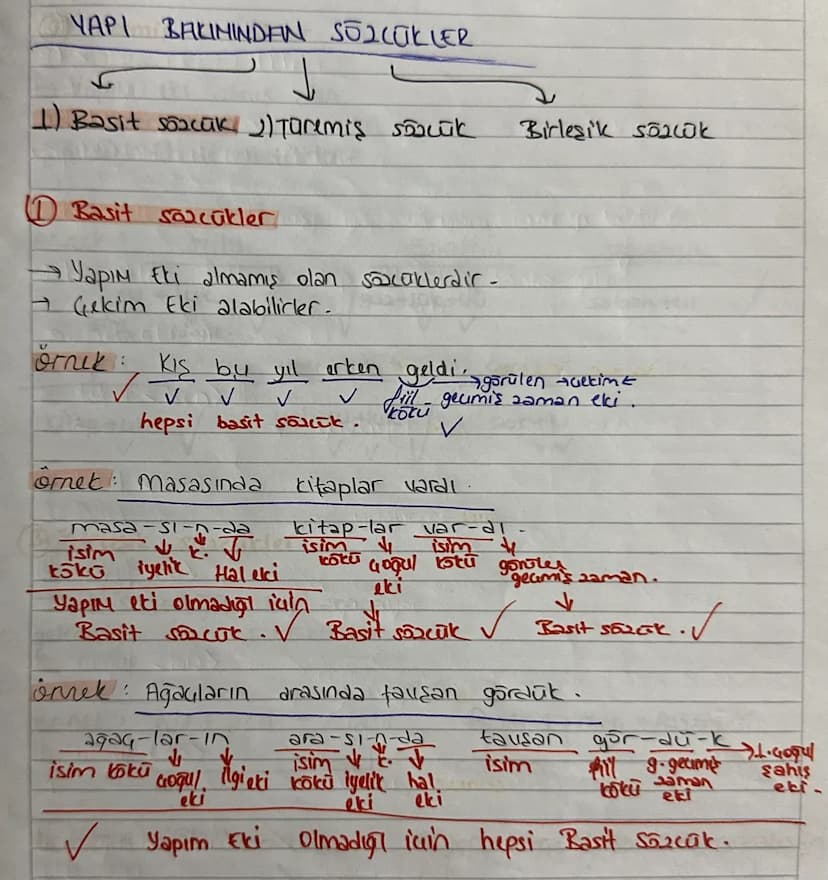 YAPI BAKIMINDAN SÖZCÜKLER
1) Basit sözcük 2) Türemiş sözcük Birleşik sözcük
① Basit sözcükler
→ Yapım Eki almamış olan sözcüklerdir.
→ Çekim Eki alabilirler.
örnek: Kış bu yıl erken geldi.
→görülen →çekim E
fiil kökü geçmiş zaman eki.
hepsi basit sözcük.
örnek: Masasında kitaplar vardı.
masa-sı-n-da kitap-lar var-dı.
isim kökü iyelik k. Hal eki isim kökü çoğul eki isim kökü görülen geçmiş zaman.
Yapım eki olmadığı için
Basit sözcük. ✓ Basit sözcük ✓ Basit sözcük. ✓
örnek: Ağaçların arasında tavşan gördük.
ağaç-lar-ın ara-sı-n-da tavşan gör-dü-k →1.çoğul şahıs eki.
isim kökü çoğul eki ilgi eki isim kökü iyelik eki k. hal eki isim fiil kökü g.geçmiş zaman eki
✓ Yapım Eki Olmadığı için hepsi Basit Sözcük.